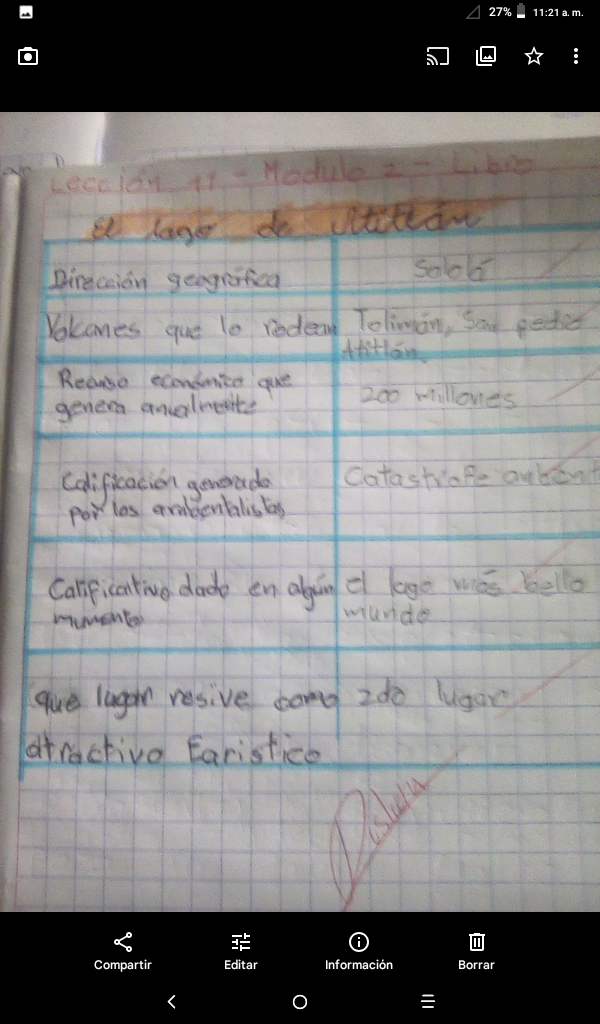 27% 11:21 a. m.
Lección 11 - Modulo 2 - Libro
El lago de Atitlán
Dirección geográfica
Sololá
Volcanes que lo rodean
Tolimán, San pedro
Atitlán.
Recurso económico que
genera anualmente
200 millones
Calificación generada
por los ambentalistas
Catastrofe ambent
Calificativo dado en algún
mumento
el lago más bello
mundo
que lugar resive como
atractivo Taristico
2do lugar
Compartir
Editar
Información
Borrar